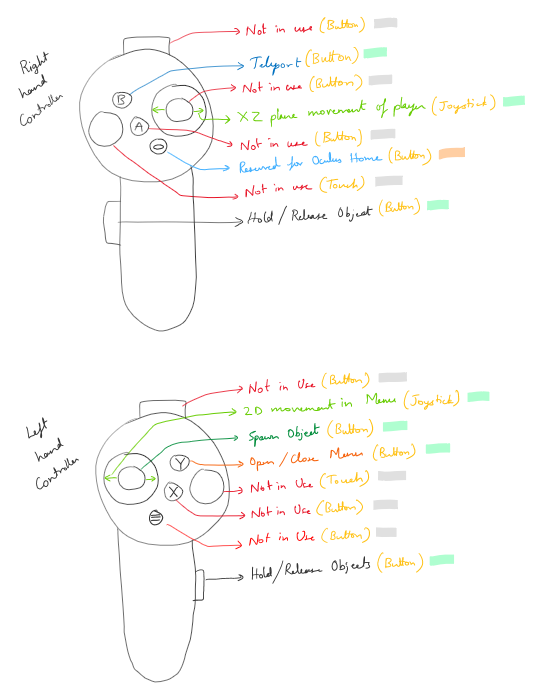 Right
hand
Controller
Not in use (Button)
Teleport (Button)
Not in use (Button)
XZ plane movement of player (Joystick)
Not in use (Button)
Reserved for Oculus Home (Button)
Not in use (Touch)
Hold / Release Object (Button)
B
A
Left
hand
Controller
Not in Use (Button)
2D movement in Menu (Joystick)
Spawn Object (Button)
Open / Close Menus (Button)
Not in Use (Touch)
Not in Use (Button)
Not in Use (Button)
Hold / Release Objects (Button)
Y
X